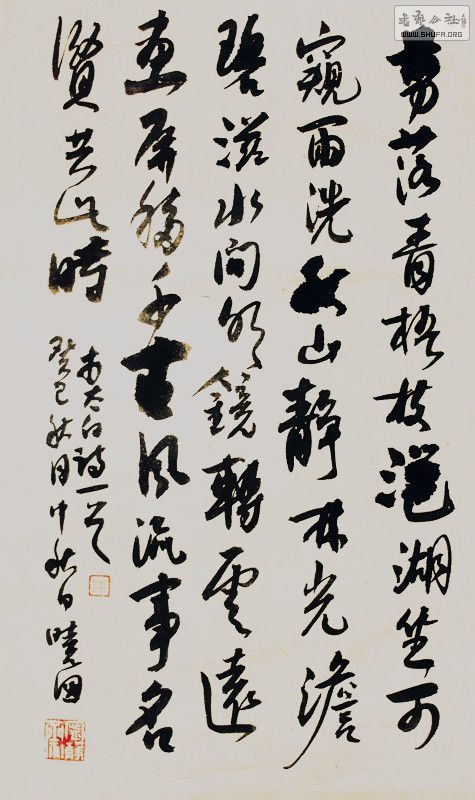 書藝公社
WWW.SHUFA.ORG
剪落青梧枝灉湖坐可
窺雨洗秋山靜林光澹
碧滋水间明鏡轉雲遠
畫屏移千古風流事名
賢共此時
右太白詩一首
癸巳秋月中秋日曉